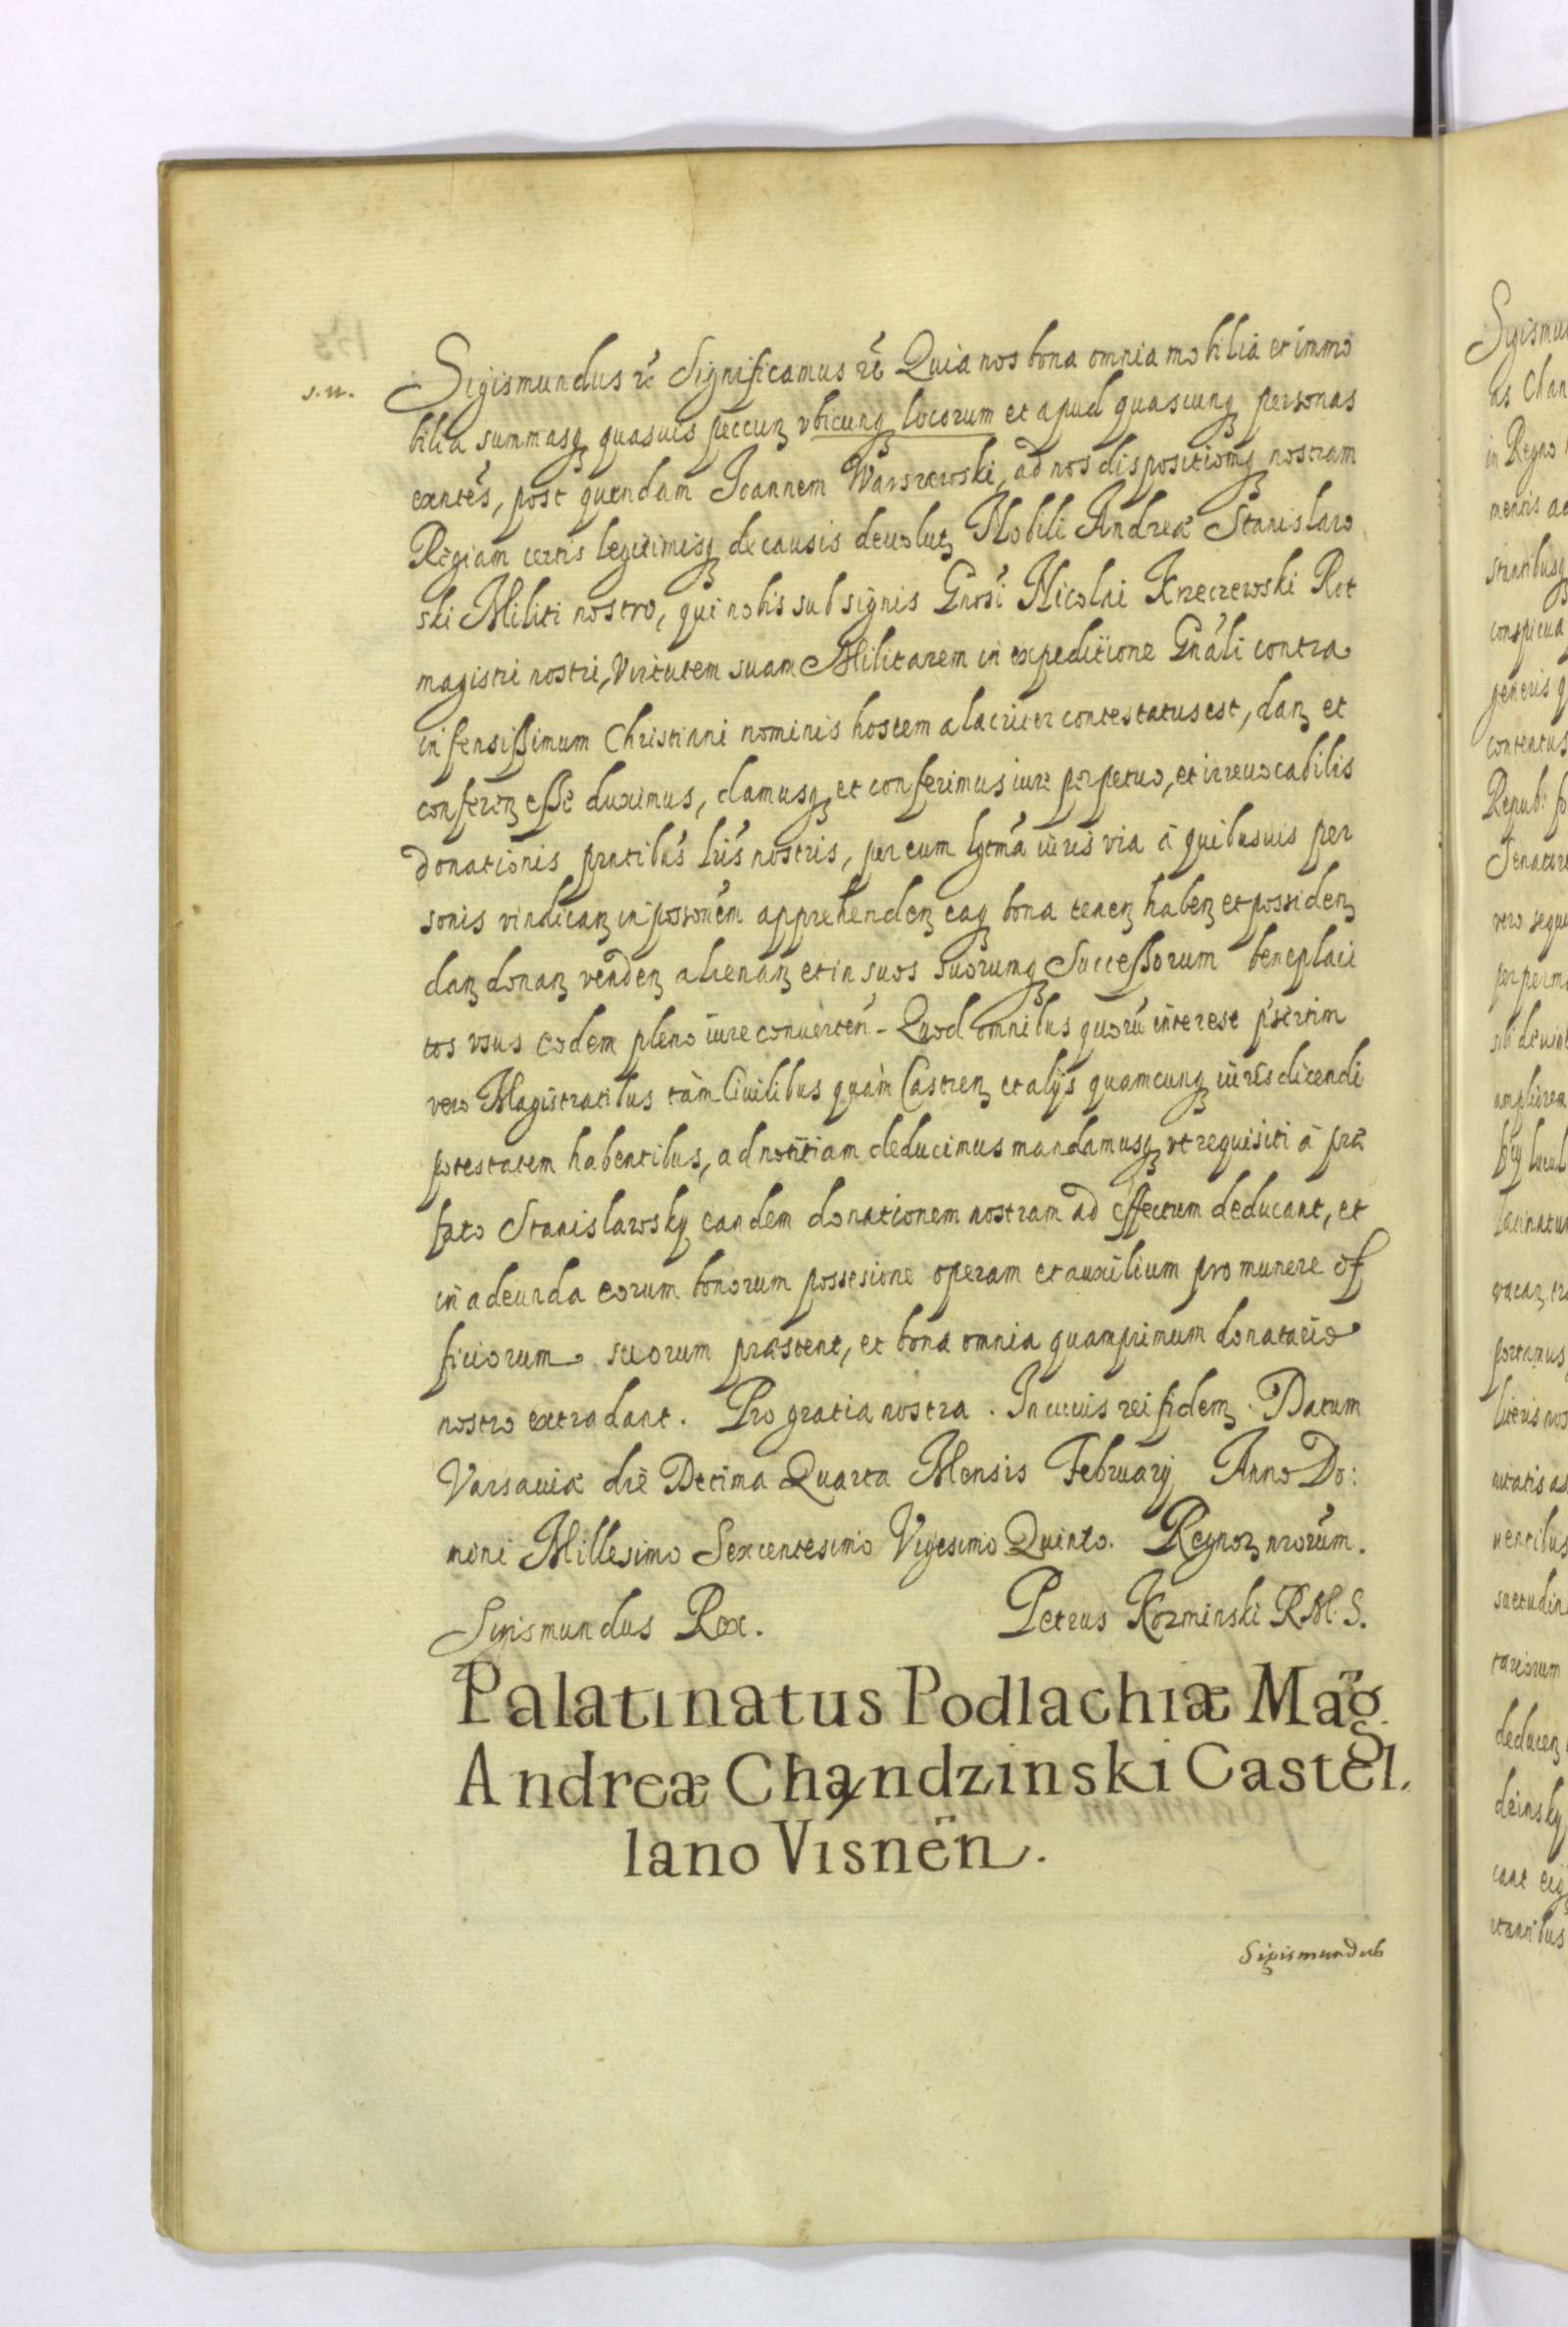 s. n.
Sigismundus rẽ Significamus rẽ Quia nos bona omnia mobilia et immo
bilia summasqꝫ quasuis peccunꝫ vbicunqꝫ locorum et apud quascunqꝫ personas
exntes, post quendam Joannem Warszewski, ad nos dispositionẽqꝫ nostram
Regiam certis legitimisqꝫ de causis deuolutꝫ Nobili Andreæ Stanislaw
ski Militi nostro, qui nobis sub signis Gnosi Nicolai Krzeczewski Rot
magistri nostri, Virtutem suam Militarem in expeditione Gnáli contra
infensissimum Christiani nominis hostem alacriter contestatus est, danꝫ et
conferenꝫ esse duximus, damusqꝫ et conferimus iure perpetuo, et irreuocabilis
donationis pñtibus lris nostris, per eum lgtma iuris via á quibusuis per
sonis vindicanꝫ in possonem apprehendenꝫ eaqꝫ bona tenenꝫ habenꝫ et possidenꝫ
danꝫ donanꝫ vendenꝫ alienanꝫ et in suos suorumqꝫ Successorum beneplaci
tos vsus eodem pleno iure conuerten̄. Quod omnibus quorũ interest p̃sertim
vero Magistratibus tàm Ciuilibus quàm Castrenꝫ et alijs quamcunqꝫ iuris dicendi
potestatem habentibus, ad notitiam deducimus mandamusqꝫ vt requisiti á præ
fato Stanislawsky eandem donationem nostram ad effectum deducant, et
in adeunda eorum bonorum possesione operam et auxilium pro munere of
ficiorum suorum præstent, et bona omnia quamprimum donatario
nostro extradant. Pro gratia nostra. In cuius rei fidemꝫ. Datum
Varsauiæ die Decima Quarta Mensis February Anno Do:
mini Millesimo Sexcentesimo Vigesimo Quinto. Regnorꝫ nrorum.
Sigismundus Rex. Petrus Kozminski R. M. S.
Palatinatus Podlachiæ Mag̃.
Andreæ Chądzinski Castel,
lano Visnen̄.
Sigismundus